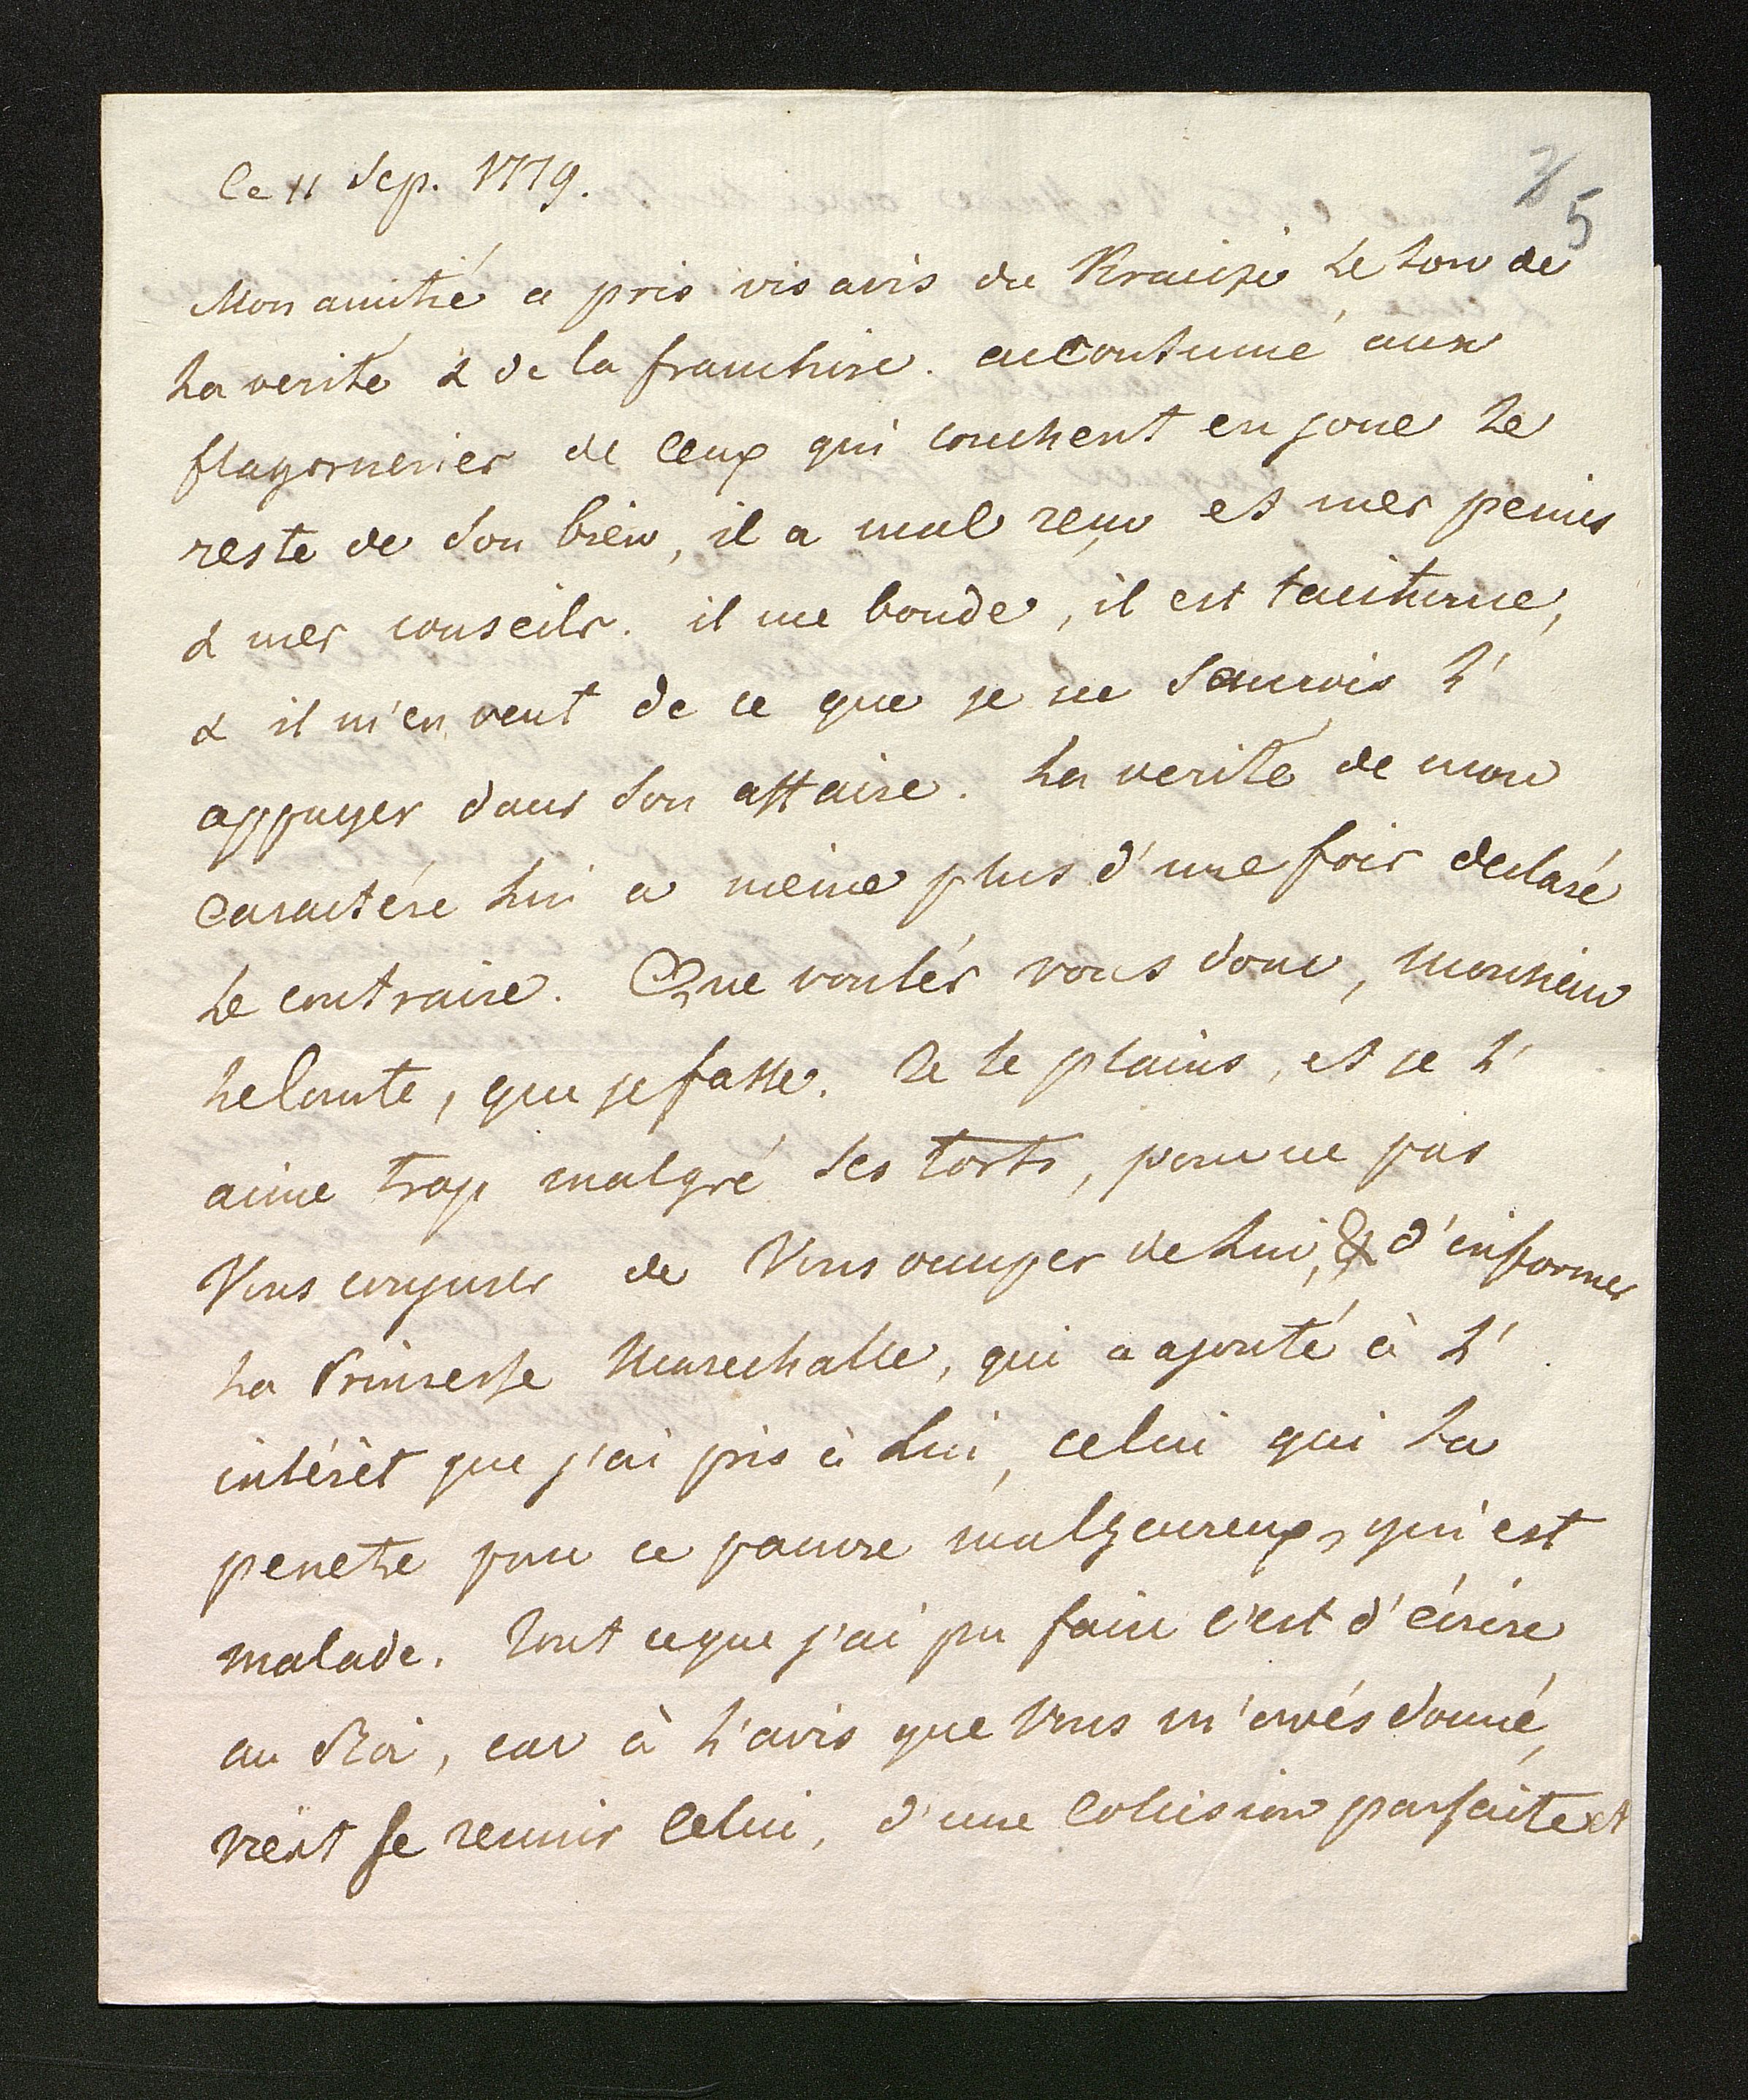 Ce 11 Sep. 1779.
5
Mon amitié a pris vis avis du Kraicze le ton de
la verité & de la franchise. accoutumé aux
flagorneries de ceux qui couchent en joue le
reste de son bien, il a mal reçu et mes peines
& mes conseils. il me boude, il est taciturne,
& il m'en veut de ce que je ne saurois l'
appuyer dans son affaire. la verité de mon
caractére lui a meme plus d'une fois declaré
le contraire. Que voulés vous donc, Monsieur
le Comte, que je fasse. Je le plains, et je l'
aime trop malgré ses torts, pour ne pas
Vous conjurer de Vous occuper de lui, & d'informer
la Princesse Marechalle, qui a ajouté à l'
intérêt que j'ai pris à lui, celui qui la
penetre pour ce pauvre malheureux, qui est
malade. Tout ce que j'ai pu faire c'est d'écrire
au Roi, car à l'avis que Vous m'avés donné,
vient se reunir celui, d'une Collusion parfaite et